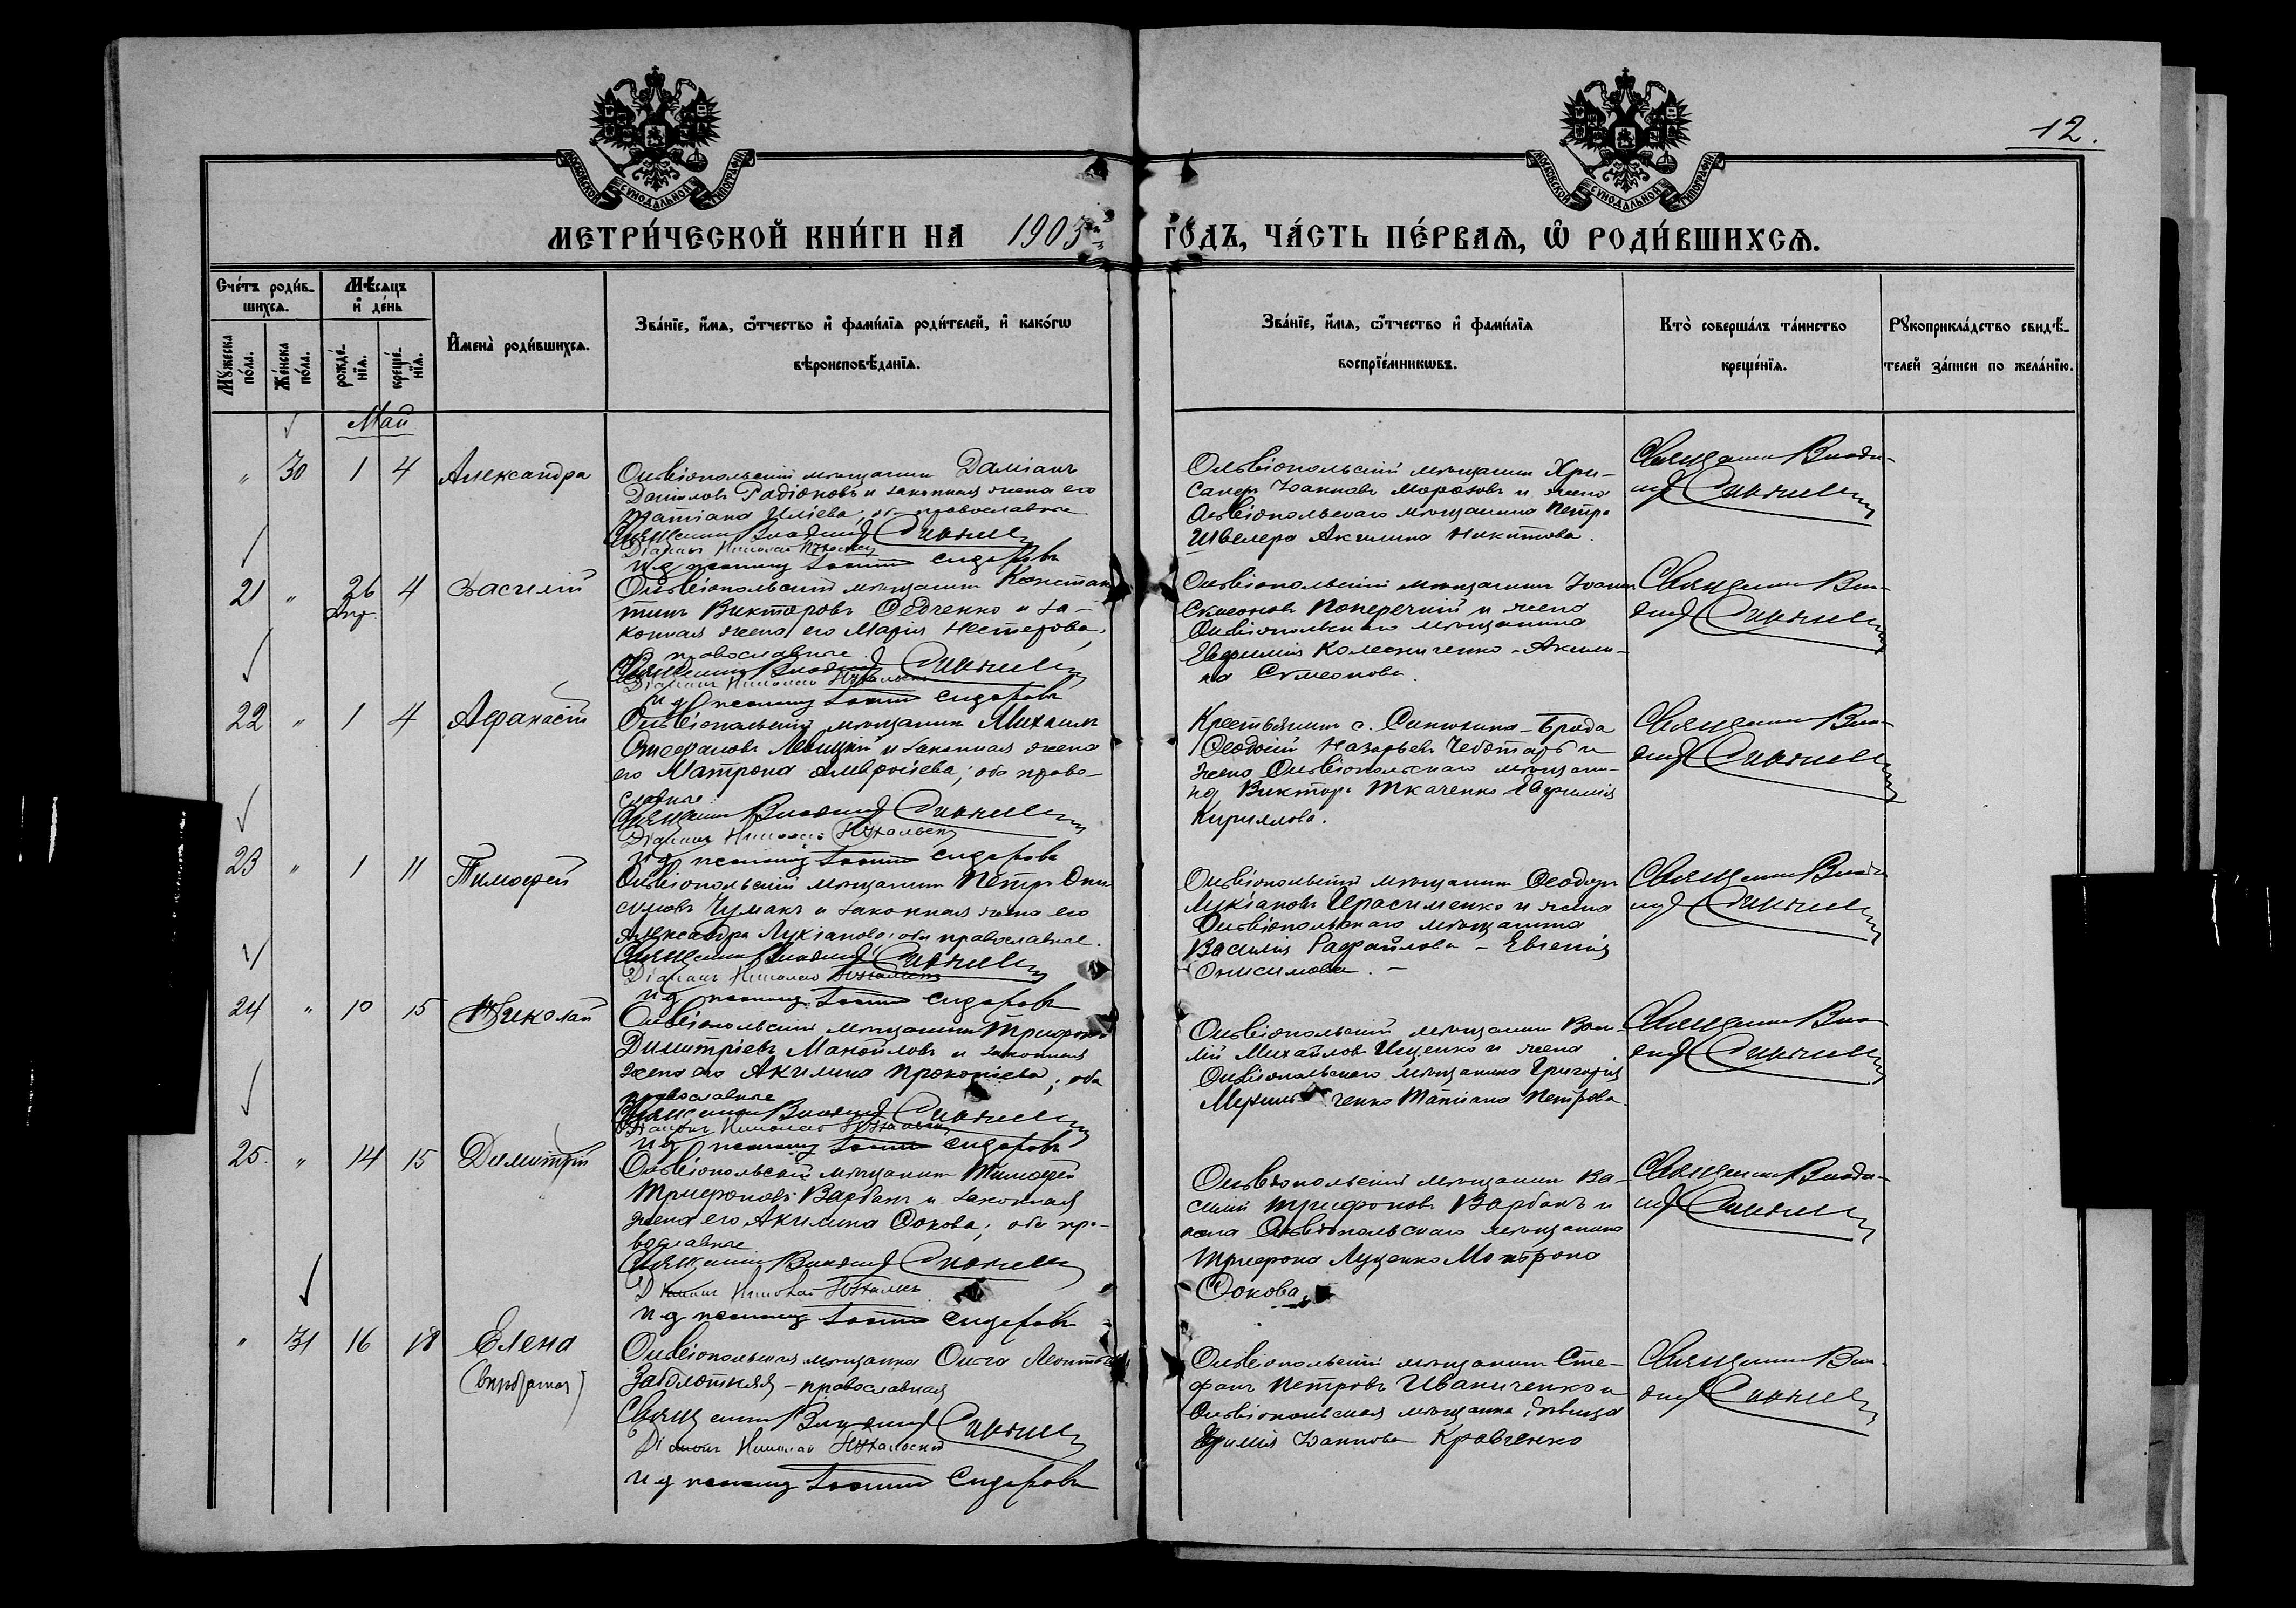 МОСКОВСКОЙ СѴНОДАЛЬНОЙ ТИПОГРАФІИ
МОСКОВСКОЙ СѴНОДАЛЬНОЙ ТИПОГРАФІИ
12.
МЕТРИ́ЧЕСКОЙ КНИ́ГИ НА 1903й ГО́ДЪ, ЧА́СТЬ ПЕ́РВАѦ, Ѡ҆ РОДИ́ВШИХСѦ.
Сче́тъ роди́в-
шихсѧ.
Мꙋжеска по́ла.
Же́нска по́ла.
Мѣ́сѧцъ
и҆ де́нь
рожде́-
нїѧ.
креще́-
нїѧ.
И҆мена̀ роди́вшихсѧ.
Зва́нїе, и҆́мѧ, ѻ҆́тчество и҆ фами́лїѧ роди́телей, и҆ како́гѡ
вѣроисповѣ́данїѧ.
Зва́нїе, и҆́мѧ, ѻ҆́тчество и҆ фами́лїѧ
воспрїе́мникѡвъ.
Кто̀ соверша́лъ та́инство
креще́нїѧ.
Рꙋкоприкла́дство свидѣ́-
телей за́писи по жела́нїю.
Май
" 30 1 4 Александра
Ольвіопольскій мѣщанинъ Даміанъ
Даніиловъ Радіоновъ и законная жена его
Татіана Иліева, оба православные
Священникъ Владимір
Діаконъ Николай
и д псаломщ Сидоровъ
Ольвіопольскій мѣщанинъ Хри-
санфъ Іоанновъ Морозовъ и жена
Ольвіопольскаго мѣщанина Петра
Швелера Акилина Никитова.
Священникъ Влади-
мір
21 " 26 4 Василій
Апр.
Ольвіопольскій мѣщанинъ Констан
тинъ Викторовъ Федченко и за-
конная жена его Марія Нестерова,
православные
Священникъ Владимір
Діаконъ Николай
и д псаломщ Сидоровъ
Ольвіопольскій мѣщанинъ Іоаннъ
Симеоновъ Поперечный и жена
Ольвіопольскаго мѣщанина
Евфимія Колесниченко - Акили-
на Симеонова.
Священникъ Вла-
димір
22 " 1 4 Афанасій
Ольвіопольскій мѣщанинъ Михаилъ
Стефановъ Левицкій и законная жена
его Матрона Амвросіева; оба право-
славные
Священникъ Владимір
Діаконъ Николай
и д псаломщ Сидоровъ
Крестьянинъ с. Синюхина-Брода
Ѳеодосій Назарьевъ Чеботарь и
жена Ольвіопольскаго мѣщани-
на Виктора Ткаченко Евфимія
Кириллова.
Священникъ Вла-
димір
23 " 1 11 Тимофей
Ольвіопольскій мѣщанинъ Петръ Они
симовъ Чумакъ и законная жена его
Александра Лукіанова, оба православные.
Священникъ Владимір
Діаконъ Николай
и д псаломщ Сидоровъ
Ольвіопольскій мѣщанинъ Ѳеодоръ
Лукіановъ Герасименко и жена
Ольвіопольскаго мѣщанина
Василія Рафаилова - Евгенія
Онисимова. -
Священникъ Влади
мір
24 " 10 15 Николай
Ольвіопольскій мѣщанинъ Трифонъ
Димитріевъ Манойловъ и законная
жена его Акилина Прокопіева; оба
православные
Священникъ Владимір
Діаконъ Николай
и д псаломщ Сидоровъ
Ольвіопольскій мѣщанинъ Васи-
лій Михайловъ Ищенко и жена
Ольвіопольскаго мѣщанина Григорія
ченко Татіана Петрова.
Священникъ Вла
димір
25. " 14 15 Димитрій
Ольвіопольскій мѣщанинъ Тимофей
Трифоновъ Варбанъ и законная
жена его Акилина Фокова; оба пра-
вославные
Священникъ Владимір
Діаконъ Николай
и д псаломщ Сидоровъ
Ольвіопольскій мѣщанинъ Ва-
силій Трифоновъ Варбанъ и
жена Ольвіопольскаго мѣщанина
Трифона Луценко Матрона
Фокова.
Священникъ Влади-
мір
" 31 16 18 Елена
(внѣбрачная)
Ольвіопольская мѣщанка Ольга Леонтьева
Заболотняя - православная
Священникъ Владимір
Діаконъ Николай
и д псаломщ Сидоровъ
Ольвіопольскій мѣщанинъ Сте-
фанъ Петровъ Иваниченко и
Ольвіопольская мѣщанка, дѣвица
Евфимія Іоаннова Кравченко
Священникъ Вла-
димір